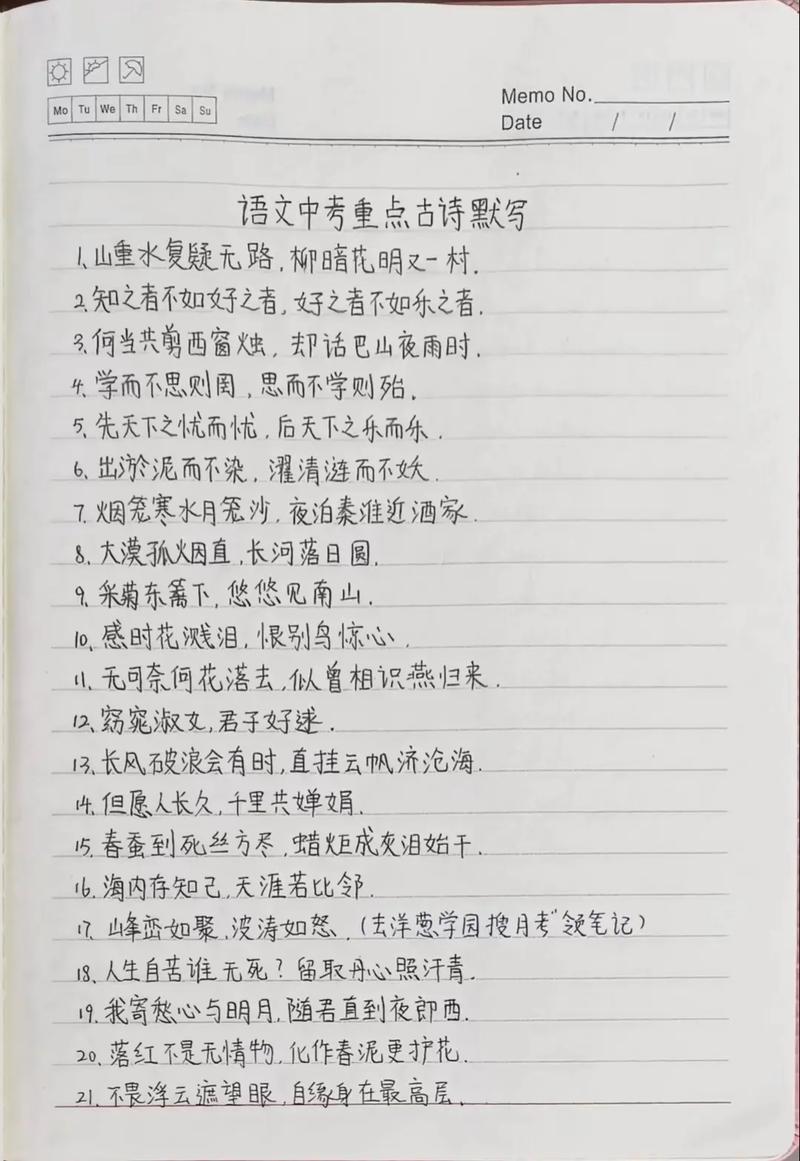 Mo Tu We Th Fr Sa Su
Memo No.
Date / /
语文中考重点古诗默写
1、山重水复疑无路,柳暗花明又一村.
2、知之者不如好之者,好之者不如乐之者.
3、何当共剪西窗烛,却话巴山夜雨时.
4、学而不思则罔,思而不学则殆.
5、先天下之忧而忧,后天下之乐而乐.
6、出淤泥而不染,濯清涟而不妖.
7、烟笼寒水月笼沙,夜泊秦淮近酒家.
8、大漠孤烟直,长河落日圆.
9、采菊东篱下,悠悠见南山.
10、感时花溅泪,恨别鸟惊心.
11、无可奈何花落去,似曾相识燕归来.
12、窈窕淑女,君子好逑.
13、长风破浪会有时,直挂云帆济沧海.
14、但愿人长久,千里共婵娟.
15、春蚕到死丝方尽,蜡炬成灰泪始干.
16、海内存知己,天涯若比邻.
17、峰峦如聚,波涛如怒.(去洋葱学园搜月考"领笔记)
18、人生自苦谁无死?留取丹心照汗青.
19、我寄愁心与明月,随君直到夜郎西.
20、落红不是无情物,化作春泥更护花.
21、不畏浮云遮望眼,自缘身在最高层.